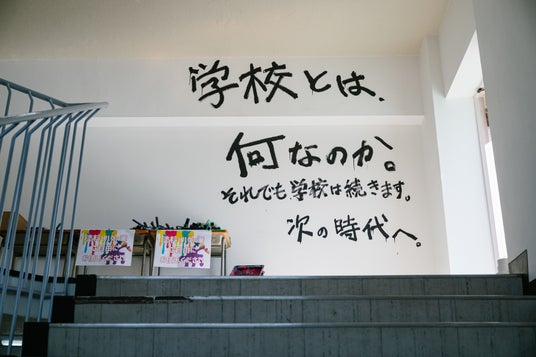 学校とは、
何なのか。
それでも学校は続きます。
次の時代へ。